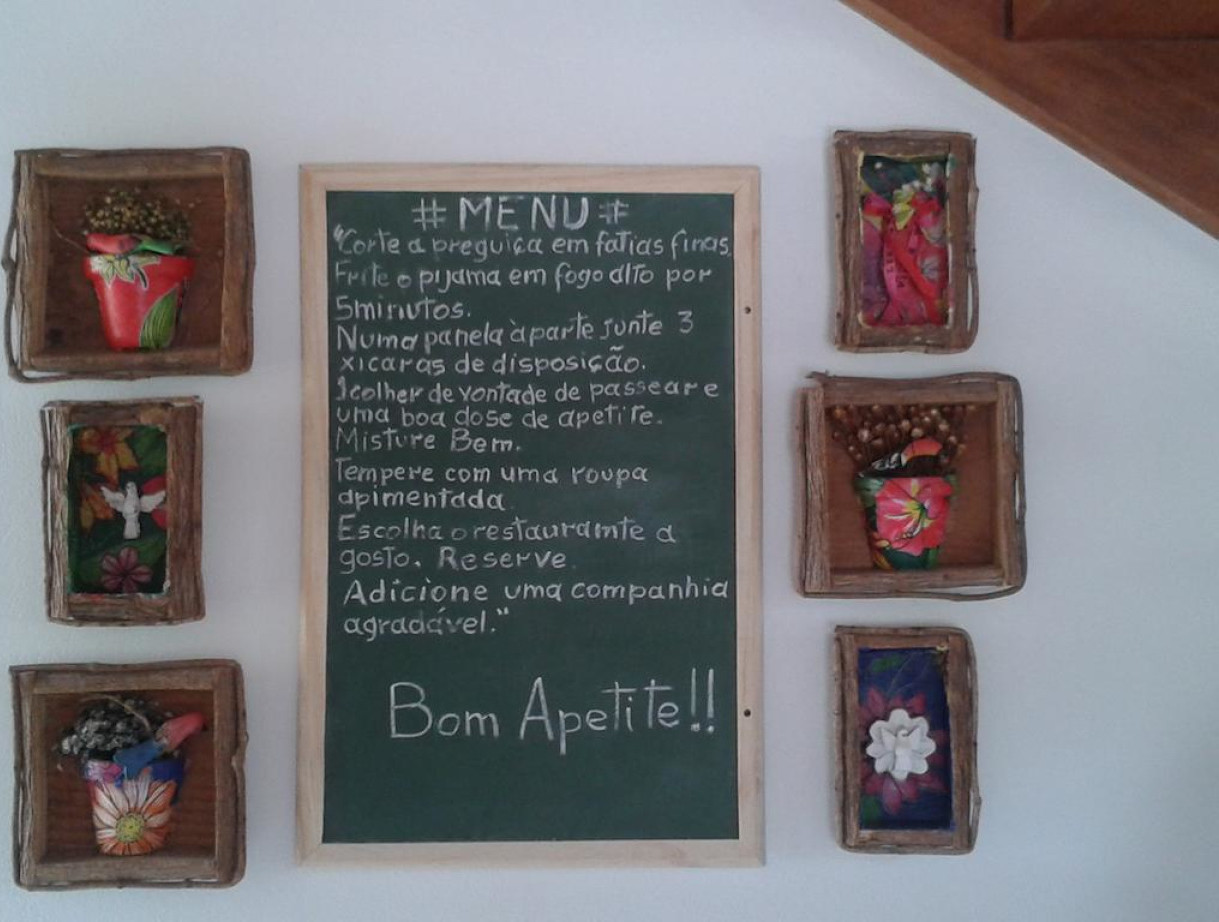 #MENU#
"Corte a preguiça em fatias finas.
Frite o pijama em fogo alto por
5minutos.
Numa panela à parte junte 3
xicaras de disposição.
1colher de vontade de passear e
uma boa dose de apetite.
Misture Bem.
Tempere com uma roupa
apimentada.
Escolha o restauramte a
gosto. Reserve.
Adicione uma companhia
agradável."
Bom Apetite!!